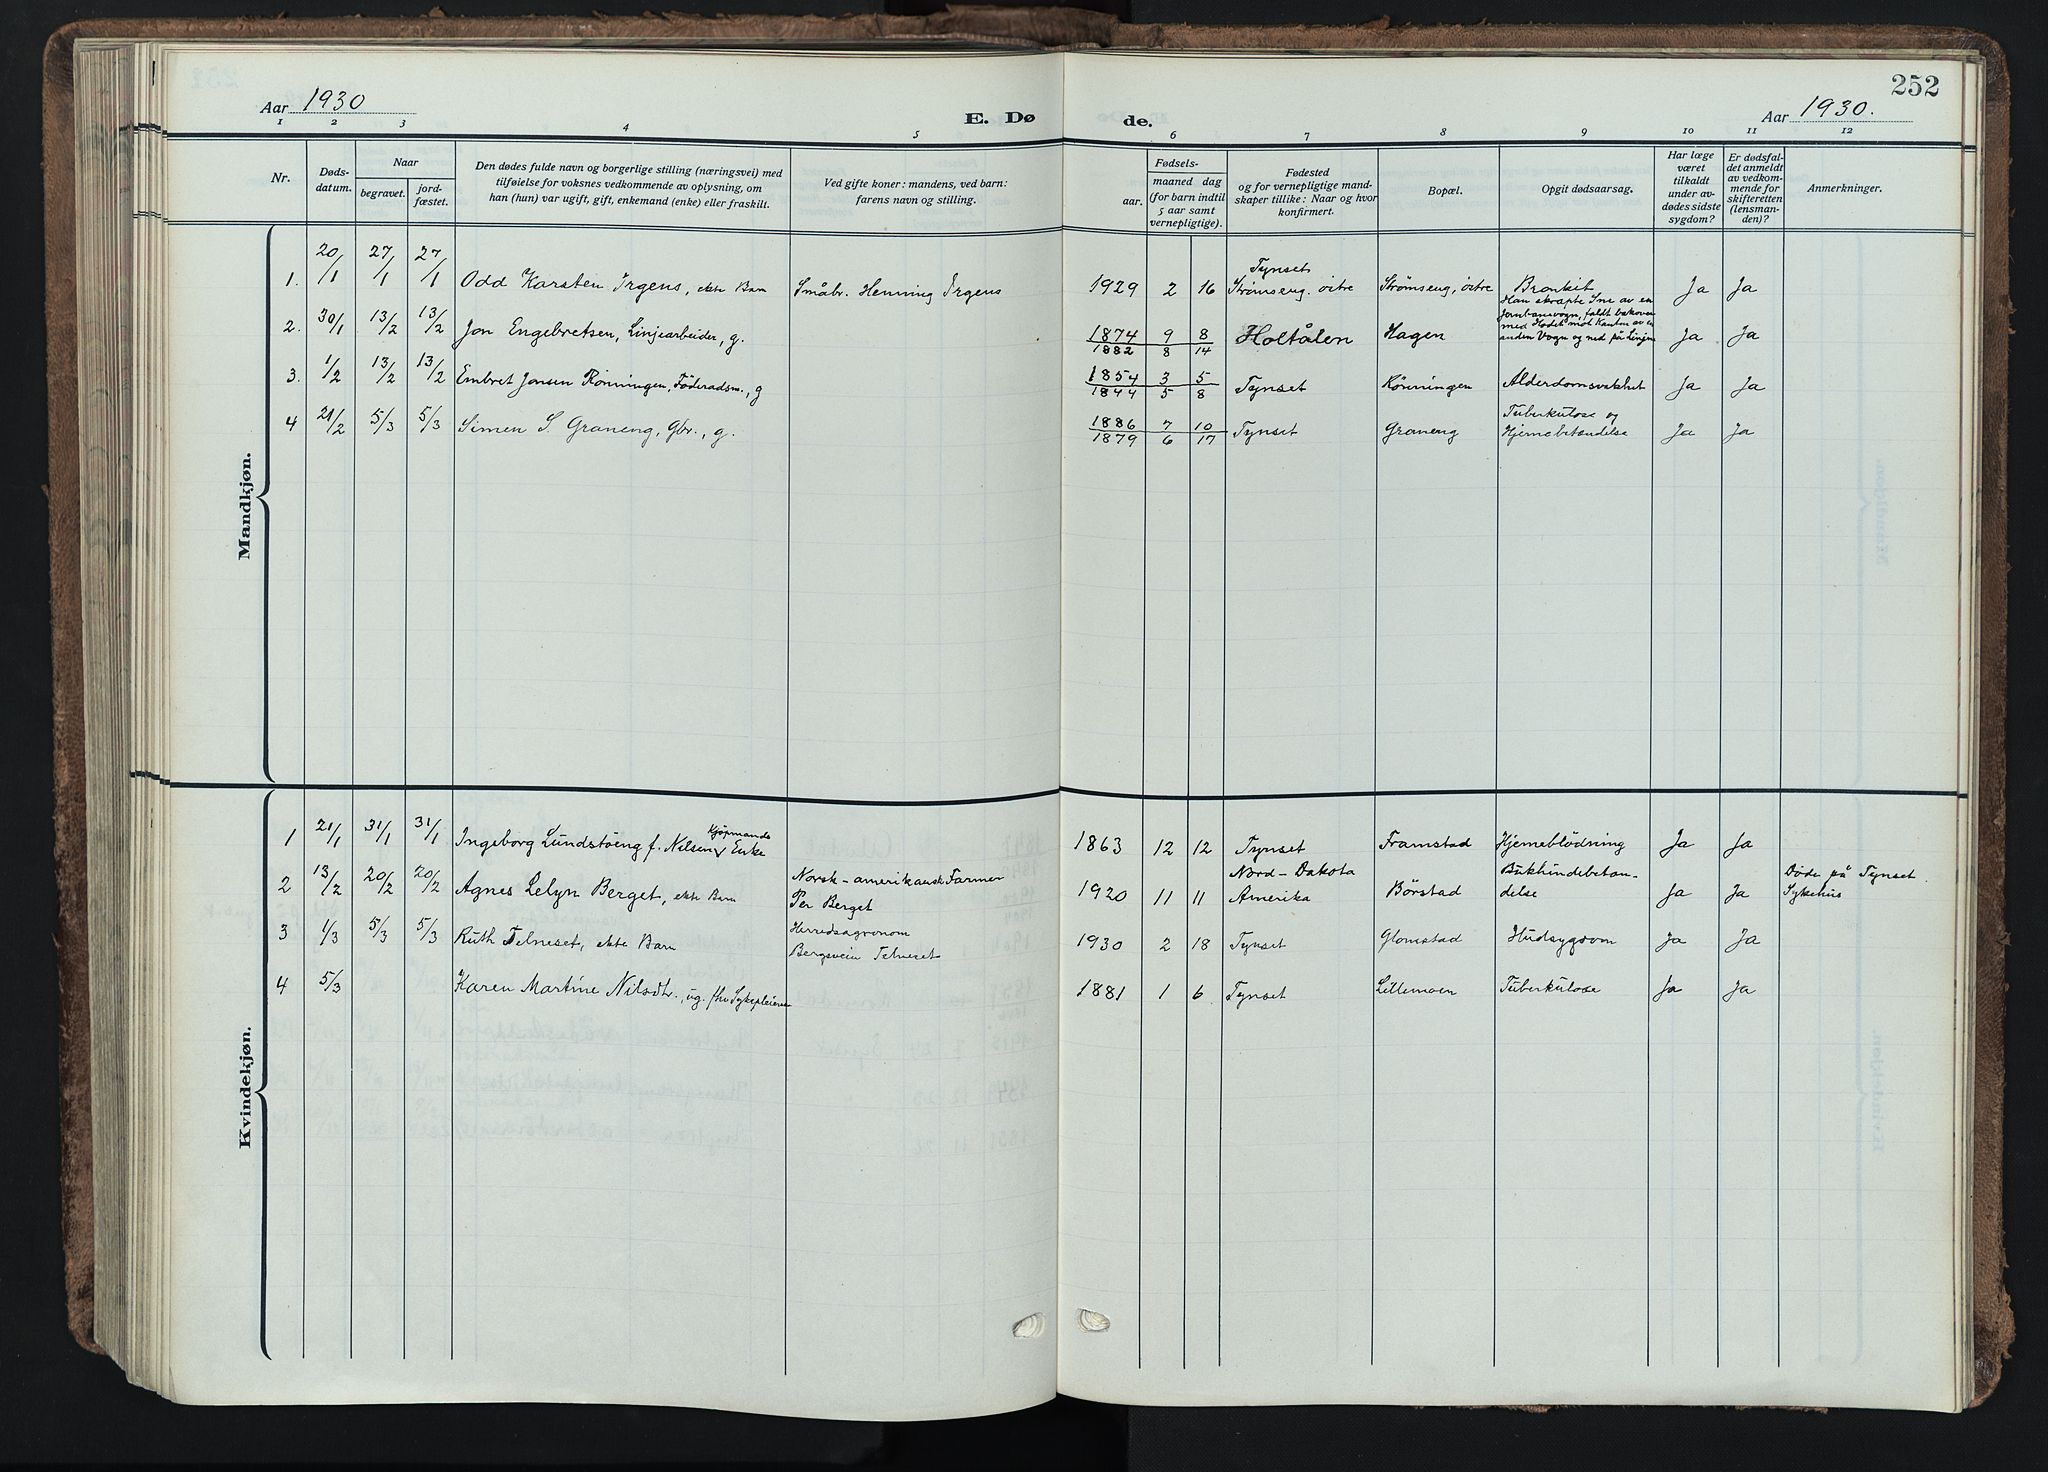 252
Aar 1930
E. Dø
de.
Aar 1930.
1 2 3 4 5 6 7 8 9 10 11 12
Nr.
Døds-
datum.
Naar
begravet.
jord-
fæstet.
Den dødes fulde navn og borgerlige stilling (næringsvei) med
tilføielse for voksnes vedkommende av oplysning, om
han (hun) var ugift, gift, enkemand (enke) eller fraskilt.
Ved gifte koner: mandens, ved barn:
farens navn og stilling.
Fødsels-
aar.
maaned dag
(for barn indtil
5 aar samt
vernepligtige).
Fødested
og for vernepligtige mand-
skaper tillike: Naar og hvor
konfirmert.
Bopæl.
Opgit dødsaarsag.
Har læge
været
tilkaldt
under av-
dødes sidste
sygdom?
Er dødsfal-
det anmeldt
av vedkom-
mende for
skifteretten
(lensman-
den)?
Anmerkninger.
Mandkjøn.
1. 20/1 27/1 27/1 Odd Karsten Irgens, ekte Barn Småbr. Henning Irgens 1929 2 16 Tynset
Strømseng. östre Strømseng, östre Bronkit Ja Ja
2. 30/1 13/2 13/2 Jon Engebretsen, Linjearbeider, g. 1874 9 8 Holtålen Hagen Han skrapte Sne av en
Jernbanevogn, faldt bakover
med Hodet mot Kanten av en
anden Vogn og ned på Linjen Ja Ja
1882 8 14
3. 1/2 13/2 13/2 Embret Jonsen Rønningen, Föderadsm., g 1854 3 5 Tynset Rønningen Alderdomsvakhet Ja Ja
1844 5 8
4 21/2 5/3 5/3 Simen S. Graneng, Gbr., g. 1886 7 10 Tynset Graneng Tuberkulose og
Hjernebetændelse Ja Ja
1879 6 17
Kvindekjøn.
1 21/1 31/1 31/1 Ingeborg Lundstöeng f. Nilsen, Kjöpmands
Enke 1863 12 12 Tynset Framstad Hjerneblödning Ja Ja
2 13/2 20/2 20/2 Agnes Lelyn Berget, ekte Barn Norsk-amerikansk Farmer
Per Berget 1920 11 11 Nord-Dakota
Amerika Börstad Bukhindebetæn-
delse Ja Ja Döde på Tynset
Sykehus
3 1/3 5/3 5/3 Ruth Telneset, ekte Barn Herredsagronom
Bergsvein Telneset 1930 2 18 Tynset Glomstad Hudsygdom Ja Ja
4 5/3 Karen Martine Nilsdtr., ug. fhv Sykepleierske 1881 1 6 Tynset Lillemoen Tuberkulose Ja Ja